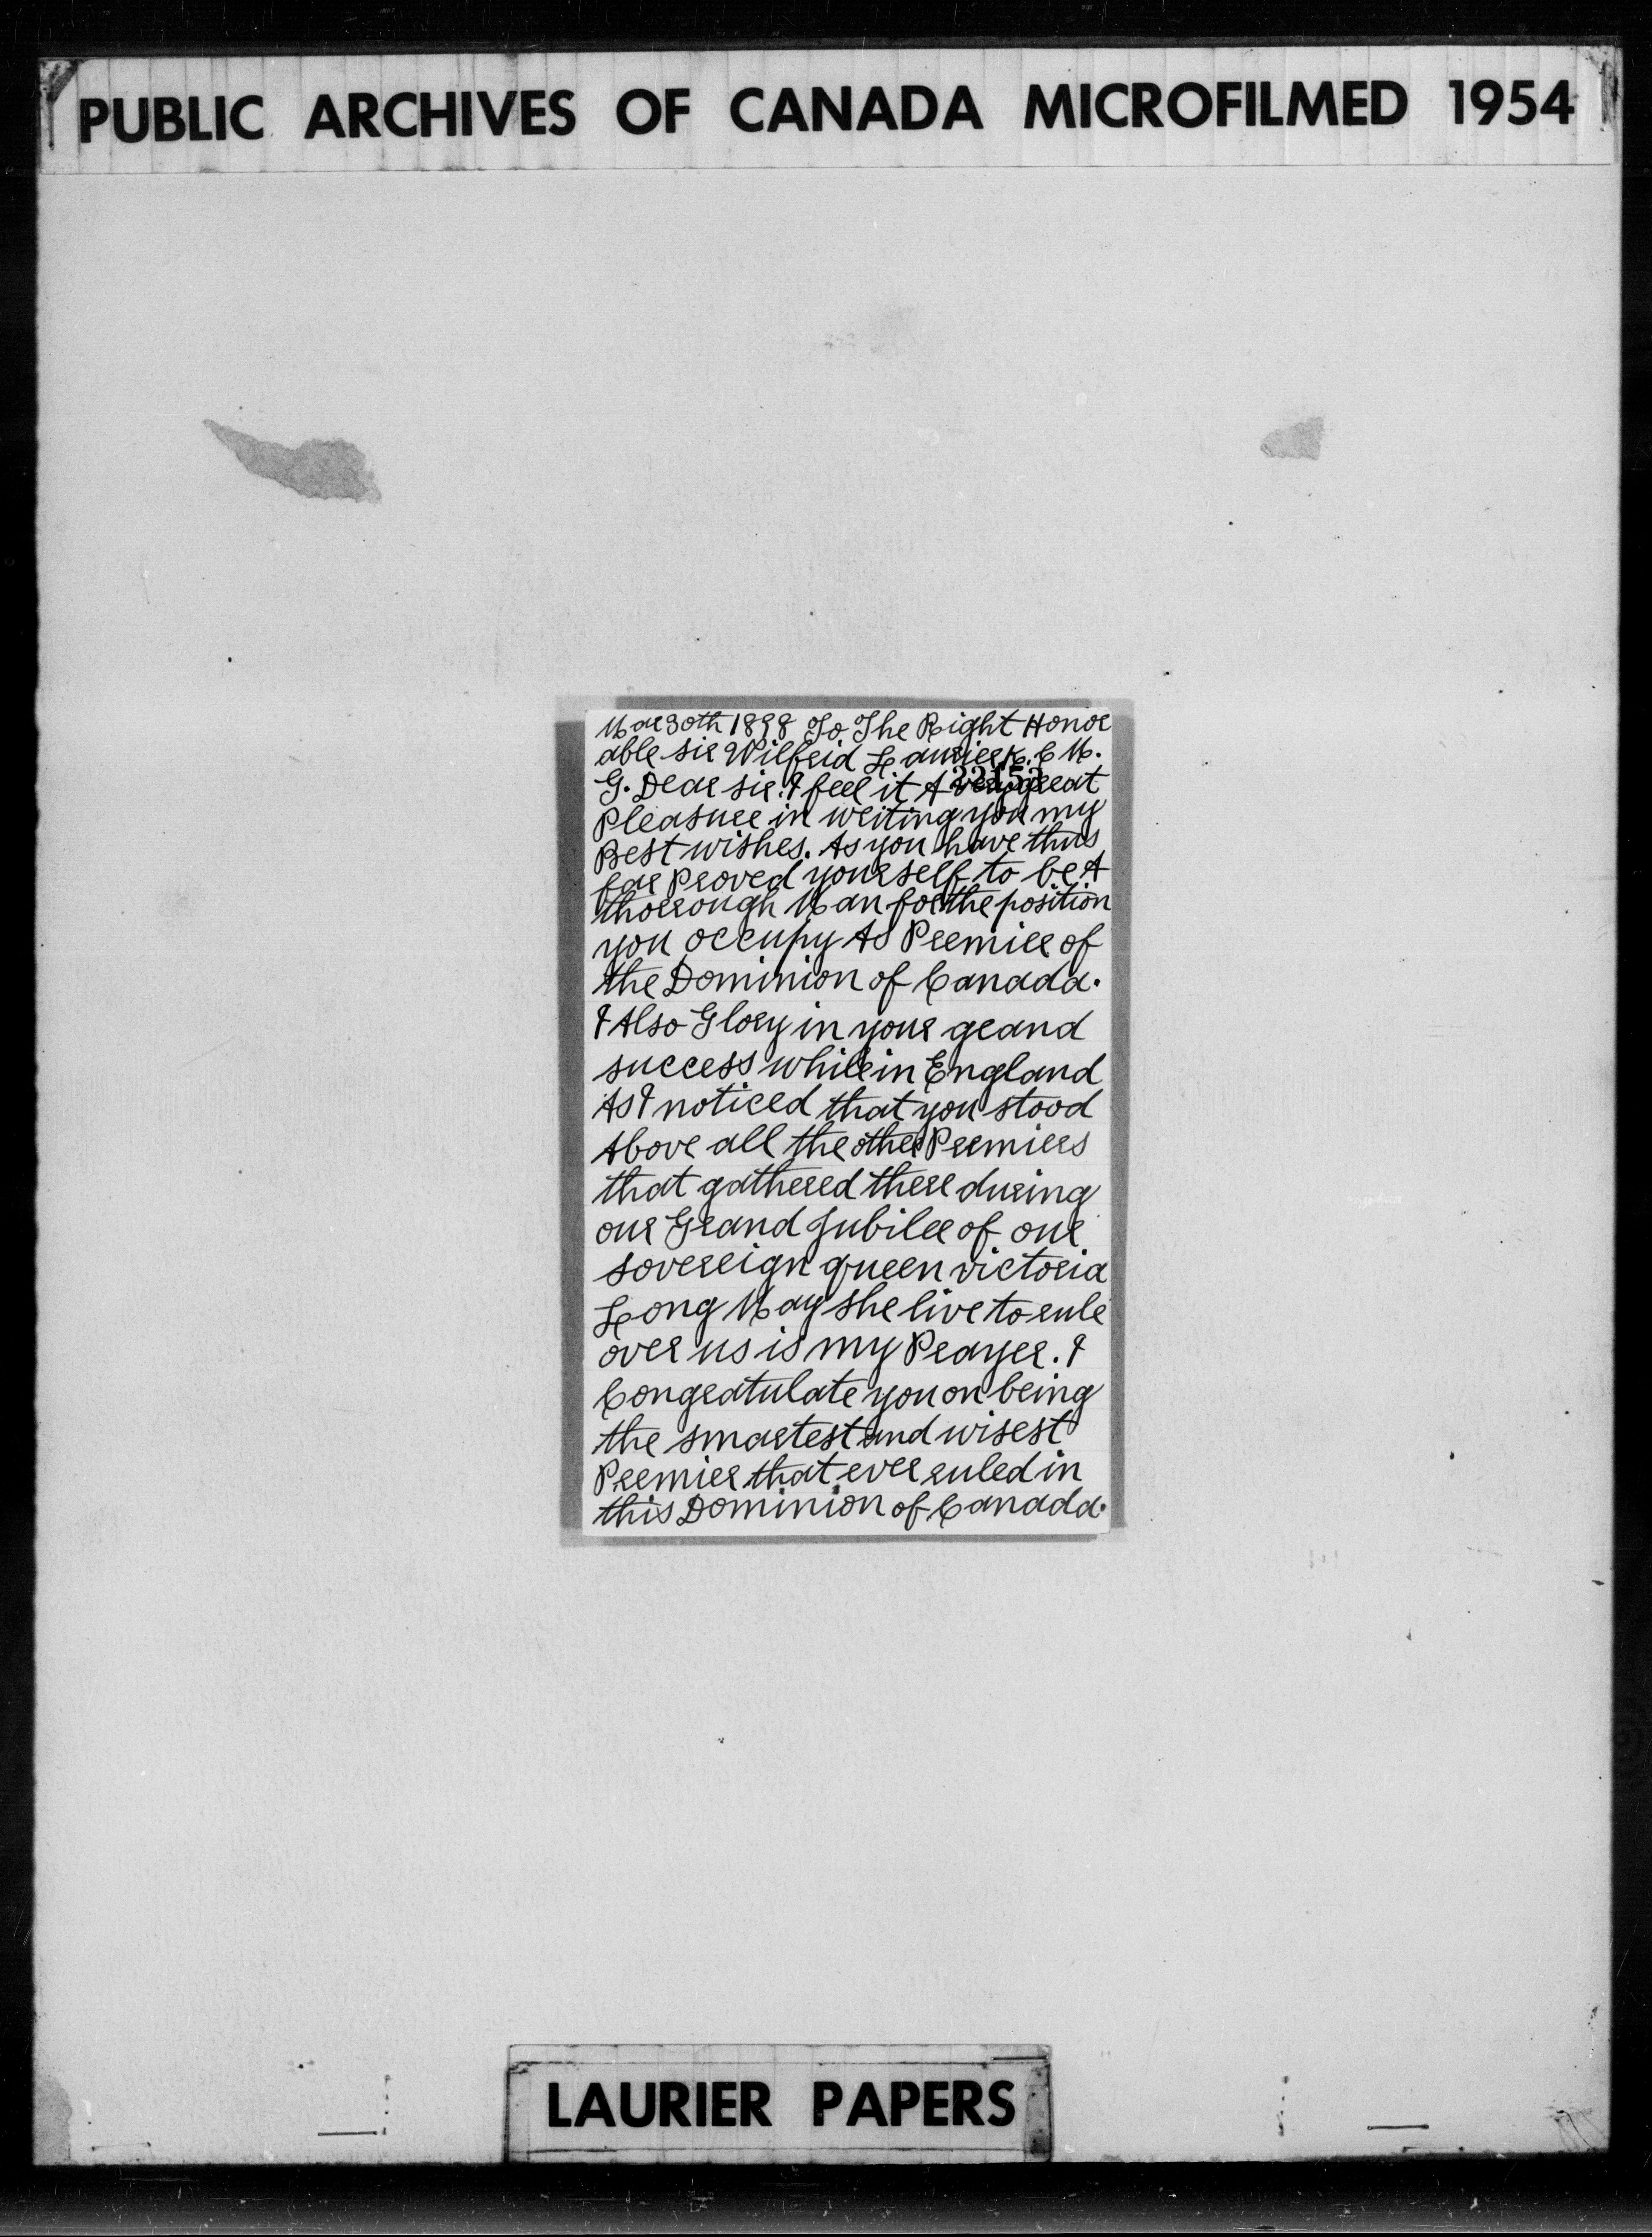 PUBLIC ARCHIVES OF CANADA MICROFILMED 1954
Mar 30th 1898 To The Right Honor
able sir Wilfrid Laurier K. C M.
22153
G. Dear sir. I feel it A very great
Pleasure in writing you my
Best wishes. As you have thus
far Proved yourself to be A
thorrough Man for the position
you occupy As Premier of
the Dominion of Canada.
I Also Glory in your grand
success while in England
As I noticed that you stood
Above all the other Premiers
that gathered there during
our Grand Jubilee of our
sovereign queen victoria
Long May she live to rule
over us is my Prayer. I
Congratulate you on being
the smartest and wisest
Premier that ever ruled in
this Dominion of Canada.
LAURIER PAPERS